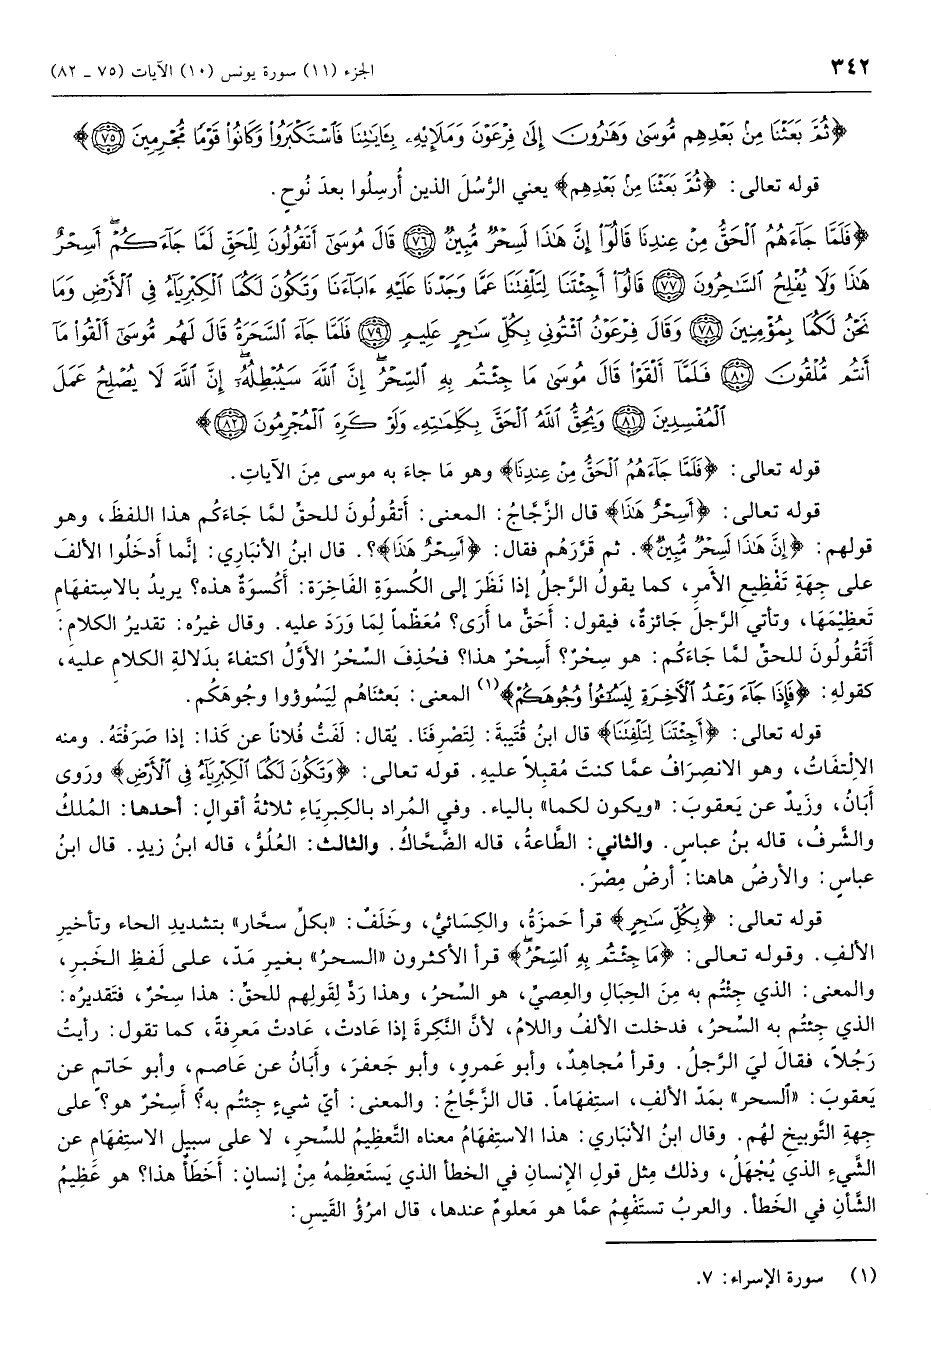 ٣٤٢ الجزء (١١) سورة يونس (١٠) الآيات (٧٥ ـ ٨٢)
﴿ثُمَّ بَعَثْنَا مِنۢ بَعْدِهِم مُّوسَىٰ وَهَٰرُونَ إِلَىٰ فِرْعَوْنَ وَمَلَإِيْهِۦ بِـَٔايَٰتِنَا فَٱسْتَكْبَرُوا۟ وَكَانُوا۟ قَوْمًا مُّجْرِمِينَ ﴿٧٥﴾﴾
قوله تعالى: ﴿ثُمَّ بَعَثْنَا مِنۢ بَعْدِهِم﴾ يعني الرُّسُلَ الذين أُرسِلُوا بعدَ نُوحٍ.
﴿فَلَمَّا جَآءَهُمُ ٱلْحَقُّ مِنْ عِندِنَا قَالُوٓا۟ إِنَّ هَٰذَا لَسِحْرٌ مُّبِينٌ ﴿٧٦﴾ قَالَ مُوسَىٰٓ أَتَقُولُونَ لِلْحَقِّ لَمَّا جَآءَكُمْ ۖ أَسِحْرٌ
هَٰذَا وَلَا يُفْلِحُ ٱلسَّٰحِرُونَ ﴿٧٧﴾ قَالُوٓا۟ أَجِئْتَنَا لِتَلْفِتَنَا عَمَّا وَجَدْنَا عَلَيْهِ ءَابَآءَنَا وَتَكُونَ لَكُمَا ٱلْكِبْرِيَآءُ فِى ٱلْأَرْضِ وَمَا
نَحْنُ لَكُمَا بِمُؤْمِنِينَ ﴿٧٨﴾ وَقَالَ فِرْعَوْنُ ٱئْتُونِى بِكُلِّ سَٰحِرٍ عَلِيمٍ ﴿٧٩﴾ فَلَمَّا جَآءَ ٱلسَّحَرَةُ قَالَ لَهُم مُّوسَىٰٓ أَلْقُوا۟ مَآ
أَنتُم مُّلْقُونَ ﴿٨٠﴾ فَلَمَّآ أَلْقَوْا۟ قَالَ مُوسَىٰ مَا جِئْتُم بِهِ ٱلسِّحْرُ ۖ إِنَّ ٱللَّهَ سَيُبْطِلُهُۥٓ ۖ إِنَّ ٱللَّهَ لَا يُصْلِحُ عَمَلَ
ٱلْمُفْسِدِينَ ﴿٨١﴾ وَيُحِقُّ ٱللَّهُ ٱلْحَقَّ بِكَلِمَٰتِهِۦ وَلَوْ كَرِهَ ٱلْمُجْرِمُونَ ﴿٨٢﴾﴾
قوله تعالى: ﴿فَلَمَّا جَآءَهُمُ ٱلْحَقُّ مِنْ عِندِنَا﴾ وهو مَا جاءَ به موسى مِنَ الآياتِ.
قوله تعالى: ﴿أَسِحْرٌ هَٰذَا﴾ قال الزَّجَّاجُ: المعنى: أَتقُولُونَ للحقِّ لمَّا جَاءَكُم هذا اللفظَ، وهو
قولهم: ﴿إِنَّ هَٰذَا لَسِحْرٌ مُّبِينٌ﴾. ثم قَرَّرَهُم فقال: ﴿أَسِحْرٌ هَٰذَا﴾؟. قال ابنُ الأنبَاري: إنَّما أَدخَلُوا الألفَ
على جِهَةِ تَفْظِيعِ الأَمرِ، كما يقولُ الرَّجلُ إذا نَظَرَ إلى الكُسوَةِ الفَاخِرَةِ: أَكُسوَةٌ هذه؟ يريدُ بالاستِفهَامِ
تَعظِيْمَهَا، وتأتي الرَّجلَ جَائزةٌ، فيقول: أَحَقٌّ ما أَرَى؟ مُعَظِّماً لِمَا وَرَدَ عليه. وقال غيرُه: تقديرُ الكلامِ:
أَتَقُولُونَ للحقِّ لمَّا جَاءَكُم: هو سِحْرٌ؟ أَسِحْرٌ هذا؟ فحُذِفَ السِّحْرُ الأَوَّلُ اكتفاءً بدَلالةِ الكلامِ عليه،
كقولهِ: ﴿فَإِذَا جَآءَ وَعْدُ ٱلْأَخِرَةِ لِيَسُـۥٓـُٔوا۟ وُجُوهَكُمْ﴾(١) المعنى: بَعثنَاهُم لِيَسُوؤوا وجُوهَكُم.
قوله تعالى: ﴿أَجِئْتَنَا لِتَلْفِتَنَا﴾ قال ابنُ قُتَيبةَ: لِتَصْرِفَنَا. يُقال: لَفَتُّ فُلاناً عن كَذا: إذا صَرَفْتَهُ. ومنه
الالْتِفَاتُ، وهو الانصِرَافُ عمَّا كنتَ مُقبِلاً عليهِ. قوله تعالى: ﴿وَتَكُونَ لَكُمَا ٱلْكِبْرِيَآءُ فِى ٱلْأَرْضِ﴾ ورَوى
أَبَانُ، وزَيدٌ عن يَعقوبَ: «ويكون لكما» بالياء. وفي المُراد بالكِبرِيَاءِ ثلاثةُ أقوالٍ: أحدها: المُلكُ
والشَّرفُ، قاله بنُ عباسٍ. والثاني: الطَّاعةُ، قاله الضَّحَّاكُ. والثالث: العُلُوُّ، قاله ابنُ زيدٍ. قال ابنُ
عباسٍ: والأرضُ هاهنا: أرضُ مِصْرَ.
قوله تعالى: ﴿بِكُلِّ سَٰحِرٍ﴾ قرأَ حَمزَةُ، والكِسَائيُّ، وخَلَفٌ: «بكلِّ سحَّار» بتشديدِ الحاء وتأخيرِ
الألفِ. وقوله تعالى: ﴿مَا جِئْتُم بِهِ ٱلسِّحْرُ ۖ﴾ قرأَ الأكثرون «السحرُ» بغيرِ مَدّ، على لَفظِ الخَبرِ،
والمعنى: الذي جِئْتُم به مِنَ الحِبَالِ والعِصِيِّ، هو السِّحرُ، وهذا رَدٌّ لِقَولِهم للحقِّ: هذا سِحْرٌ، فتَقديرُه:
الذي جِئتُم به السِّحرُ، فدخلت الألفُ واللامُ، لأنَّ النَّكِرَةَ إذا عَادتْ، عَادتْ مَعرِفةً، كما تقول: رأَيتُ
رَجُلاً، فقالَ ليَ الرَّجلُ. وقرأَ مُجاهِدٌ، وأبو عَمروٍ، وأبو جَعفرَ، وأَبَانُ عن عَاصمٍ، وأبو حَاتمٍ عن
يَعقوبَ: «آلسحر» بمَدّ الألفِ، استِفهَاماً. قال الزَّجَّاجُ: والمعنى: أيّ شيءٍ جِئتُم به؟ أَسِحْرٌ هو؟ على
جهةِ التَّوبيخِ لهُم. وقال ابنُ الأنبَاري: هذا الاستِفهَامُ معناه التَّعظِيمُ للسِّحرِ، لا على سبيلِ الاستِفهَامِ عن
الشَّيءِ الذي يُجْهَلُ، وذلك مِثل قولِ الإنسانِ في الخطأ الذي يَستَعظِمهُ مِنْ إنسانٍ: أَخَطَأٌ هذا؟ هو عَظِيمُ
الشَّأنِ في الخَطأ. والعربُ تستَفْهِمُ عمَّا هو مَعلومٌ عندها، قال امرُؤُ القَيسِ:
(١) سورة الإسراء: ٧.